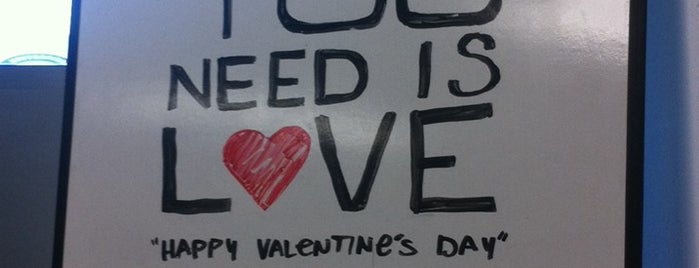 YOU
NEED IS
L❤VE
"HAPPY VALENTINE'S DAY"